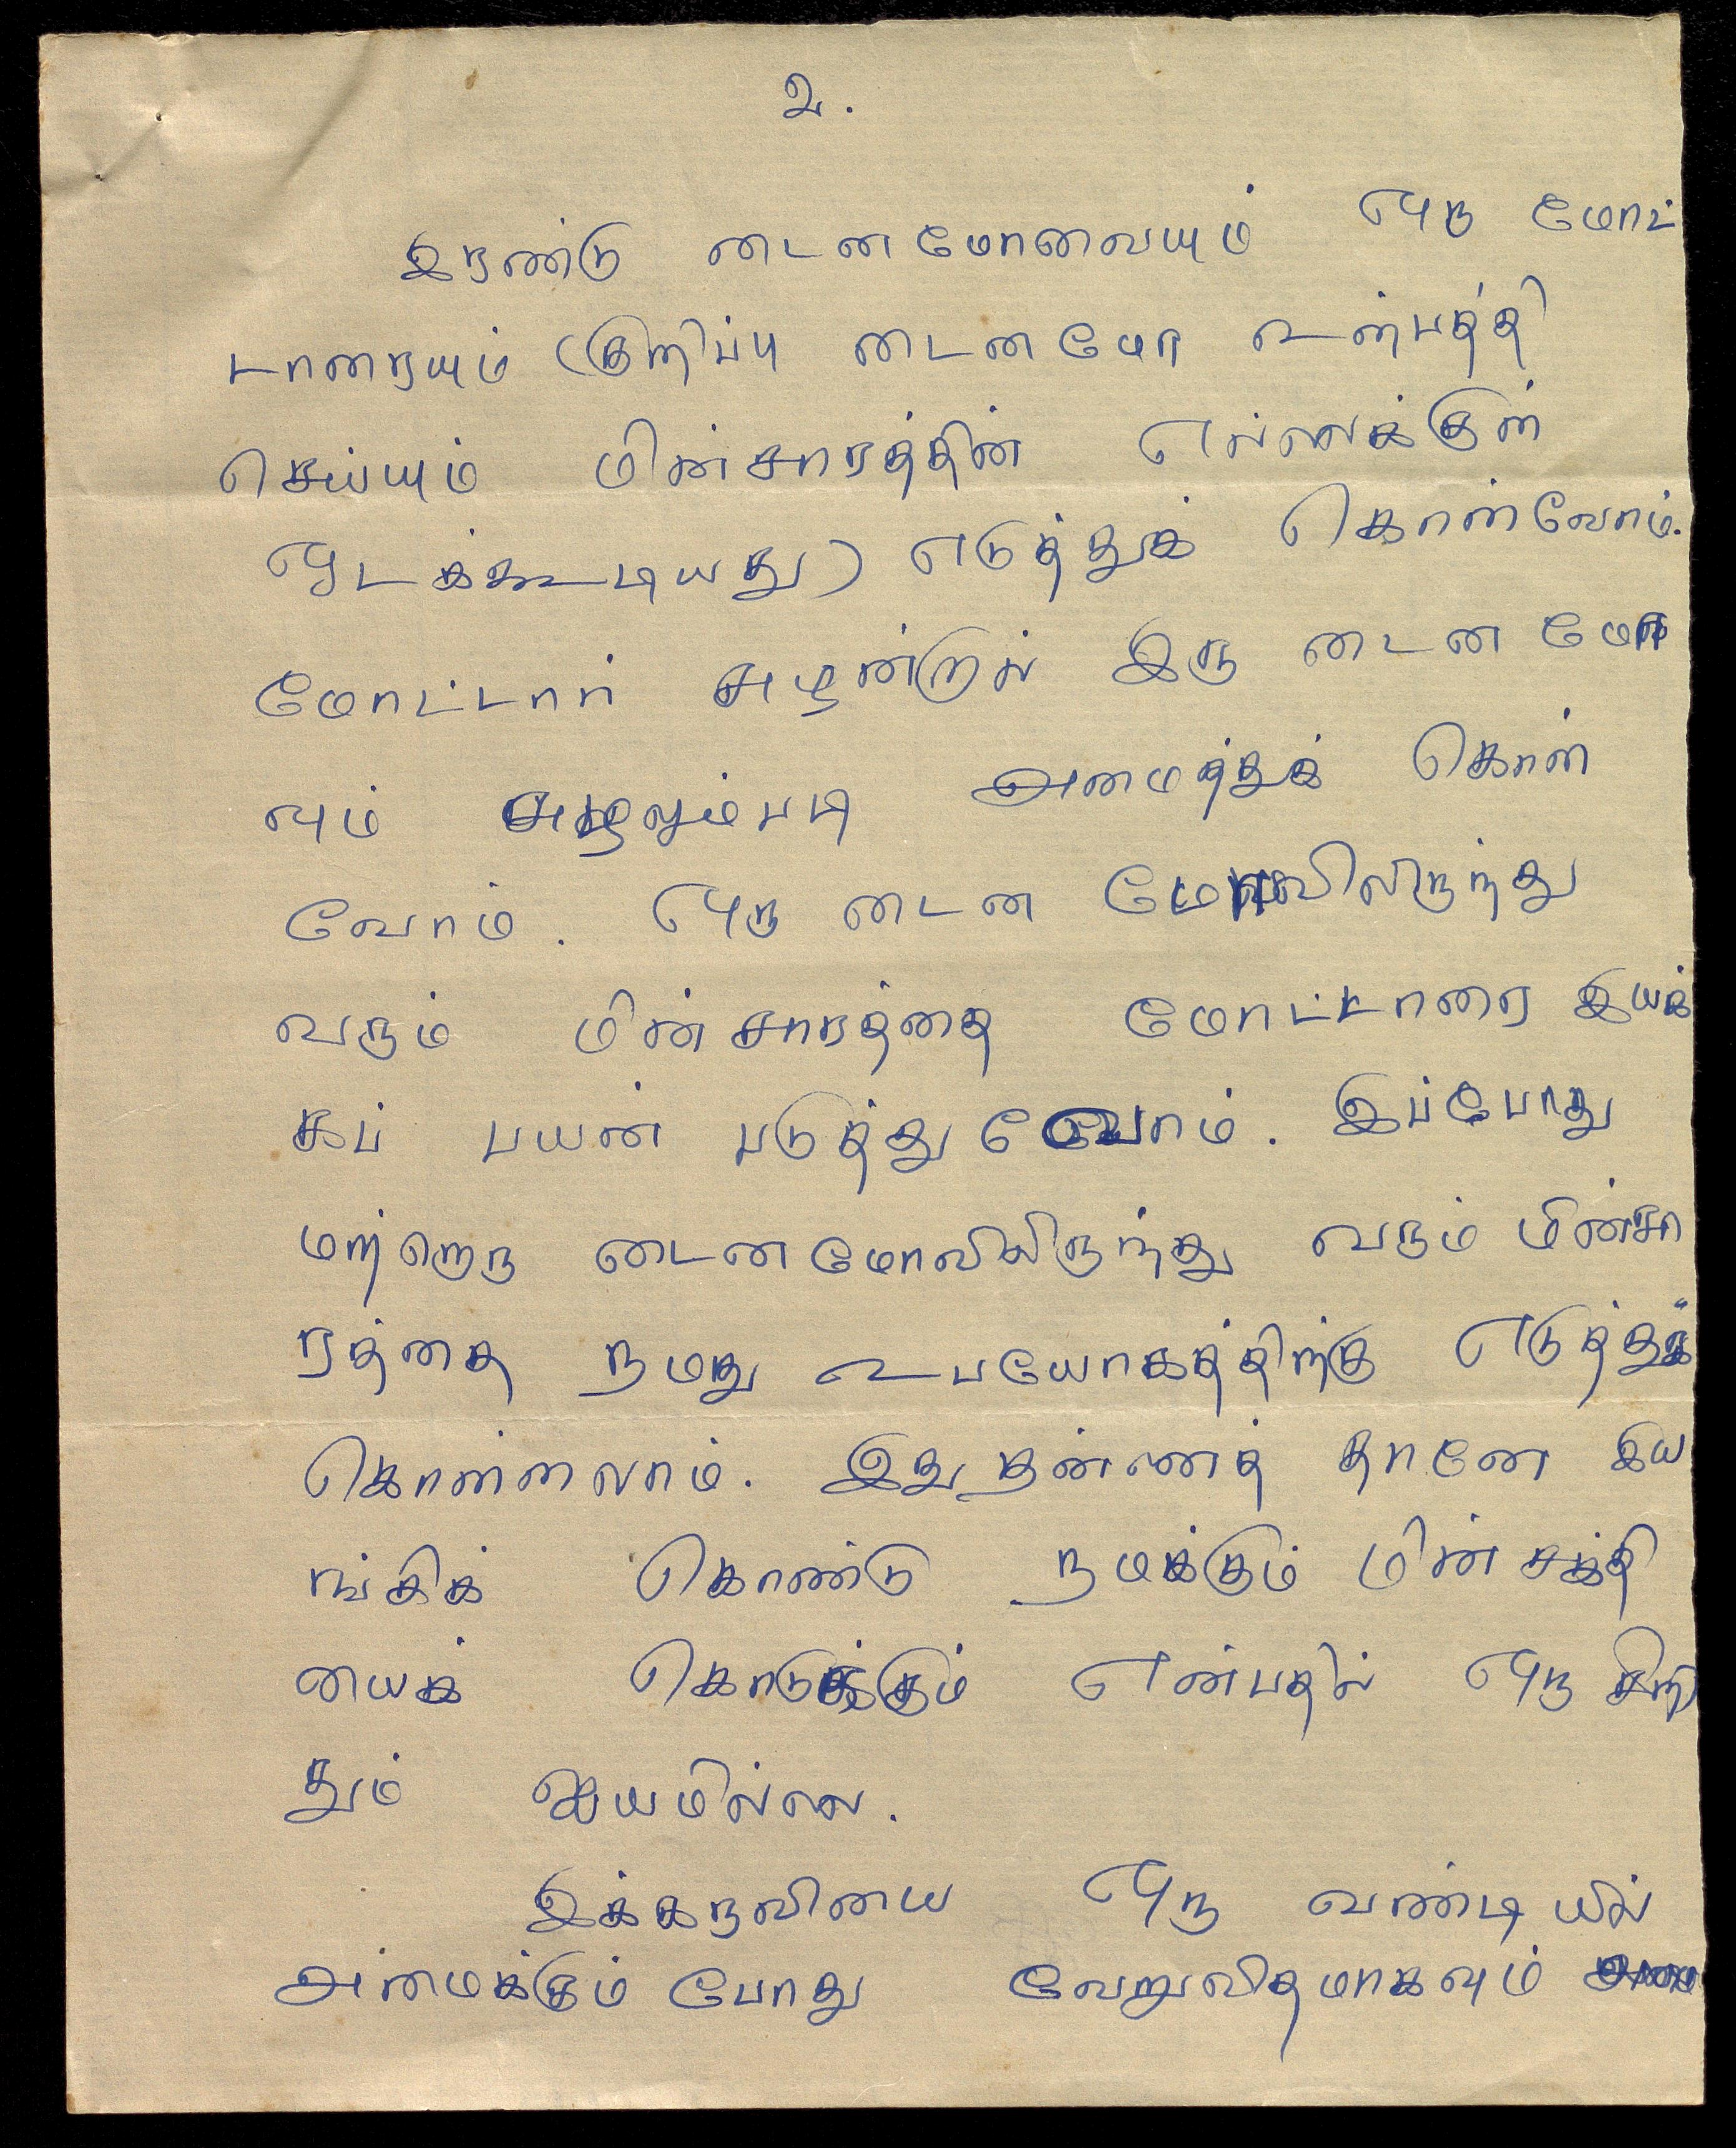 ௨.
இரண்டு டைனமோவையும் ஒரு மோட்
டாரையும் (குறிப்பு டைனமோ உன்பத்தி
செய்யும் மின்சாரத்தின் எல்லைக்குள்
ஓடக்கூடியது) எடுத்துக் கொள்வோம்.
மோட்டார் சுழன்றால் இரு டைனமோ
வும் சுழலும்படி அமைத்துக் கொள்
வோம். ஒரு டைன மோவிலிருந்து
வரும் மின்சாரத்தை மோட்டாரை இயக்
கப் பயன் படுத்துவோம். இப்போது
மற்றொரு டைனமோவிலிருந்து வரும் மின்சா
ரத்தை நமது உபயோகத்திற்கு எடுத்துக்
கொள்ளலாம். இது தன்னைத் தானே இய
ங்கிக் கொண்டு நமக்கும் மின் சக்தி
யைக் கொடுக்கும் என்பதில் ஒரு சிறி
தும் ஐயமில்லை.
இக்கருவியை ஒரு வண்டியில்
அமைக்கும் போது வேறுவிதமாகவும்